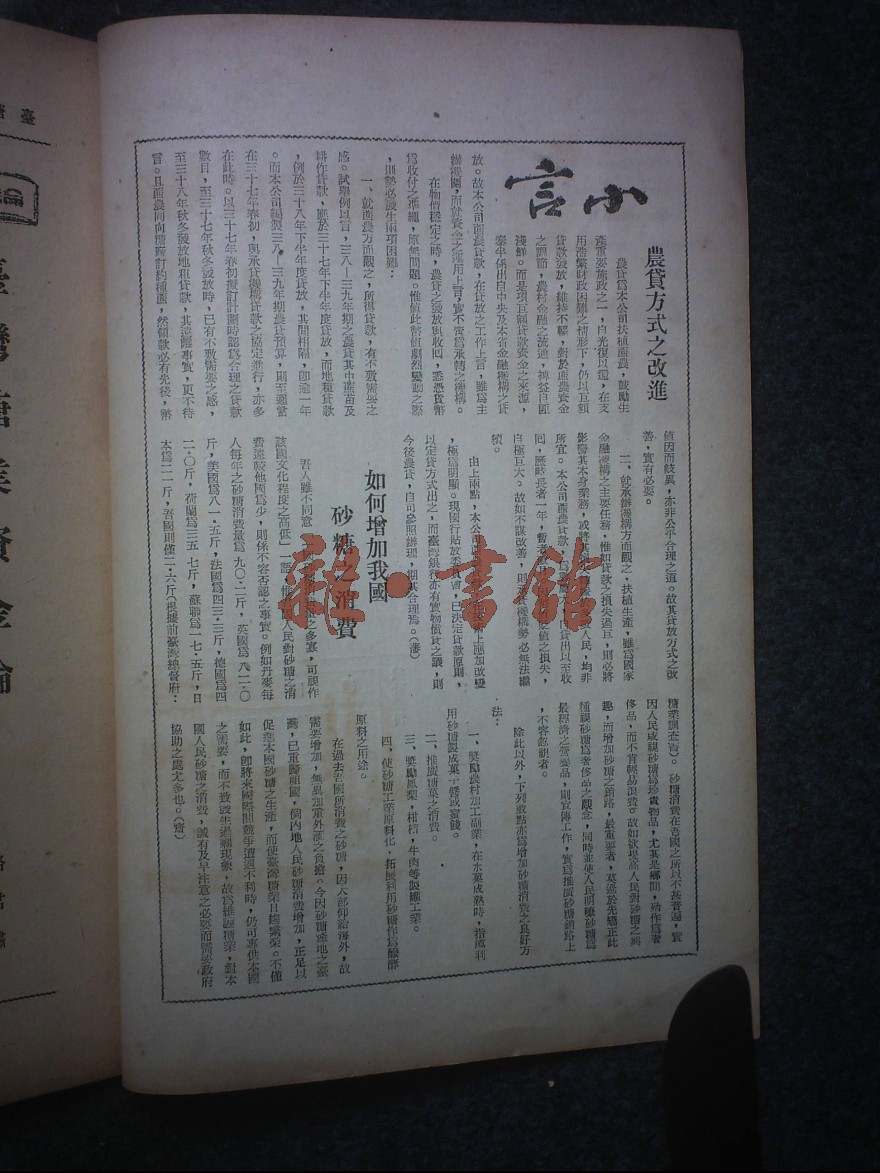 小言
農貸方式之改進
農貸為本公司扶植蔗農，鼓勵生
產重要施政之一，自光復以還，在支
用浩繁財政困難之情形下，仍以巨額
貸款發放，維持不輟，對於蔗農資金
之調節，農村金融之流通，裨益自匪
淺鮮。而是項巨額貸款資金之來源，
泰半係出自中央及本省金融機構之貸
放。故本公司蔗農貸款，在貸放之工作上言，雖為主
辦機關，而就資金之運用上言，實不啻為承轉之機構。
在物價穩定之時，農貸之發放與收回，悉憑貨幣
為收付之準繩，原無問題。惟值此幣值劇烈變動之際
，則勢必發生兩項困難：
一、就蔗農方面觀之，所得貸款，有不敷需要之
感。試舉例以言，三八—三九年期之農貸其中蔗苗及
耕作貸款，應於三十七年下半年度貸放，而地租貸款
，例於三十八年下半年度貸放，其間相隔，卽逾一年
。而本公司編製三八—三九年期農貸預算，則至遲當
在三十七年春初，與承貸機構貸款之協定進行，亦多
在此時。以三十七年春初擬訂計劃時認為合理之貸款
數目，至三十七年秋冬發放時，已有不敷需要之感，
至三十八年秋冬發放地租貸款，其遠離事實，更不待
言。且蔗農同向糖廠訂約種蔗，然領款必有先後，幣
值因而歧異，亦非公平合理之道。故其貸放方式之改
善，實有必要。
二、就承辦機構方面觀之，扶植生產，雖為國家
金融機構之主要任務，惟如貸款之損失過巨，則必將
影響其本身業務，或將其損失
人民，均非
所宜。本公司蔗農貸款，
自貸出以至收
回，歷時長者一年，暫者
值之損失，
自極巨大。故如不謀改善，則
機構勢必無法繼
續。
由上兩點，本公司
上應加改變
，極為明顯。現國行貼放委員會，已決定貸款原則，
以定貨方式出之，而臺灣銀行亦有實物償貸之議，則
今後農貸，自可參照辦理，期其合理焉。（濤）
如何增加我國
砂糖之消費
吾人雖不同意
之多寡，可視作
該國文化程度之高低」一語，惟
人民對砂糖之消
費遠較他國為少，則係不容否認之事實。例如丹麥每
人每年之砂糖消費量為九〇·二斤，英國為八一·〇
斤，美國為八一·五斤，法國為四三·三斤，德國為四
二·〇斤，荷蘭為三五·七斤，蘇聯為一七·五斤，日
本為二一斤，吾國則僅二·六斤（根據前臺灣總督府：
糖業調查書）。砂糖消費在吾國之所以不甚普遍，實
因人民咸視砂糖為珍貴物品，尤其是鄉間，殆作為奢
侈品，而不肯輕易浪費。故如欲提高人民對砂糖之興
趣，而增加砂糖之銷路，最重要者，莫過於先矯正此
種視砂糖為奢侈品之觀念，同時並使人民明瞭砂糖為
最經濟之營養品，則宣傳工作，實為推廣砂糖銷路上
，不容忽視者。
除此以外，下列數點亦為增加砂糖消費之良好方
法：
一、獎勵農村加工副業，在水菓成熟時，指導利
用砂糖製成菓干糕或蜜餞。
二、推廣糖菓之消費。
三、獎勵鳳梨，柑桔，牛肉等製罐工業。
四、使砂糖工業原料化，拓展利用砂糖作為釀酵
原料之用途。
在過去吾國所消費之砂糖，因大部仰給海外，故
需要增加，無異加重外滙之負擔。今因砂糖產地之臺
灣，已重歸祖國，倘內地人民砂糖消費增加，正足以
促進本國砂糖之生產，而使臺灣糖業日趨繁榮。不僅
如此，卽將來國際間競爭遭遇不利時，仍可專供本國
之需要，而不致發生過剩現象，故為維護糖業，對本
國人民砂糖之消費，誠有及早注意之必要而須要政府
協助之處尤多也。（濟）
雜·書館